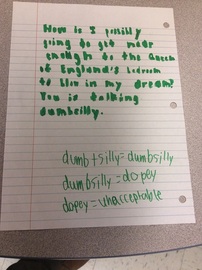 How is I possibly
going to get near
enough to the Queen
of England's bedroom
to blow in my dream?
You is talking
dumbsilly.
dumb+silly=dumbsilly
dumbsilly=dopey
dopey=unacceptable